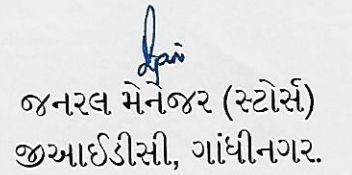 જનરલ મેનેજર (સ્ટોર્સ)
જીઆઈડીસી, ગાંધીનગર.